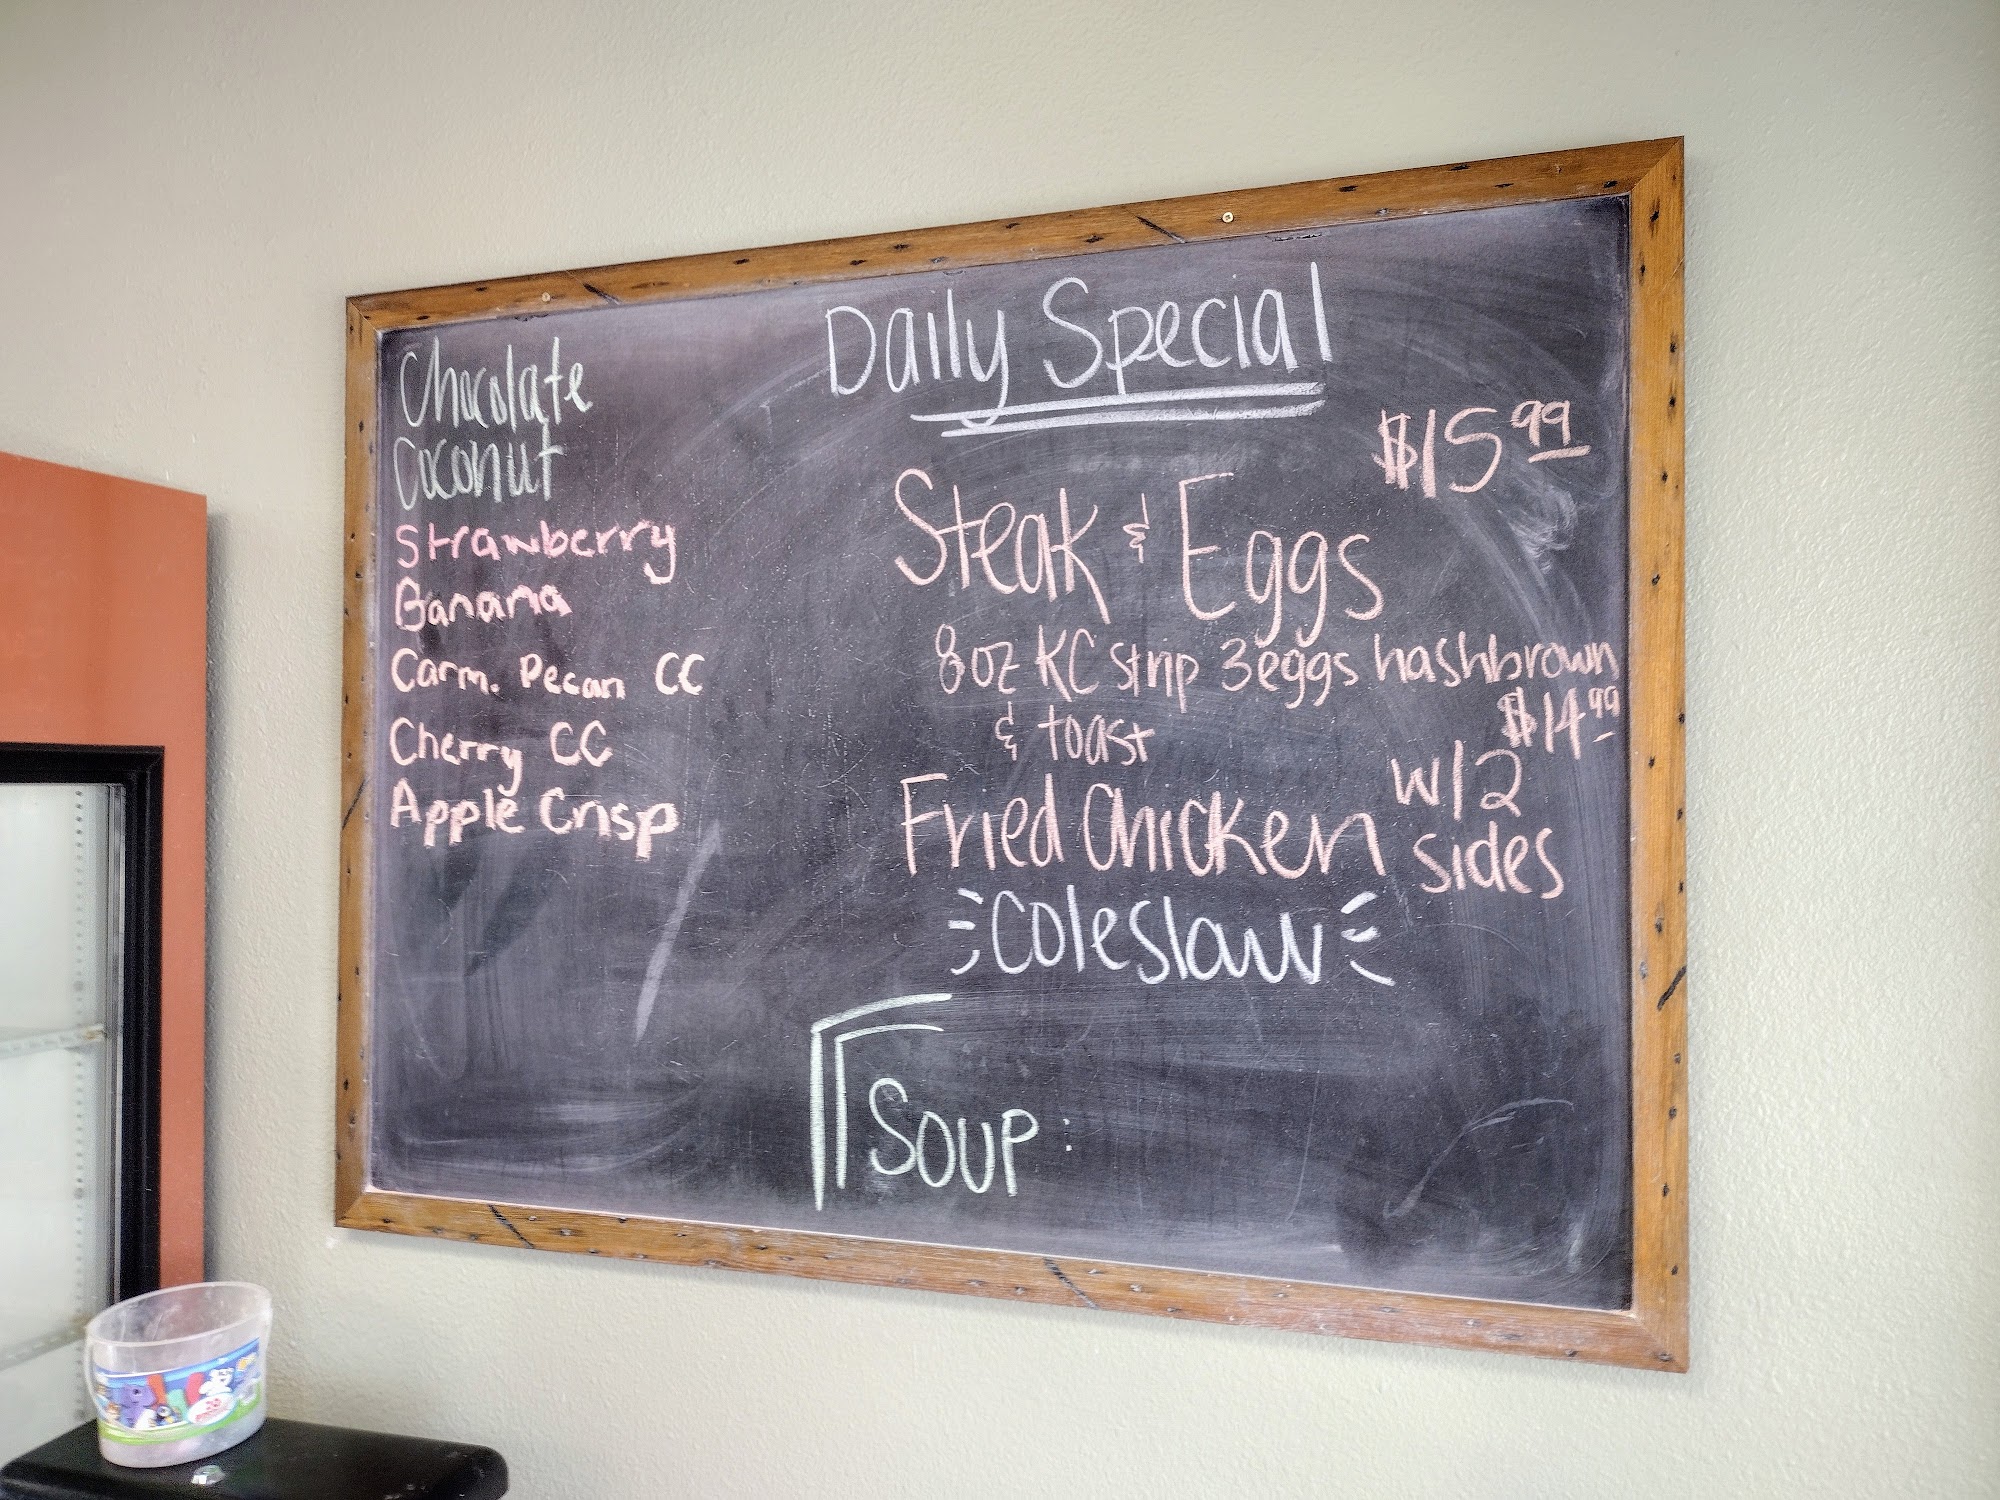 Chocolate
Coconut
Strawberry
Banana
Carm. Pecan CC
Cherry CC
Apple Crisp
Daily Special
$15.99
Steak & Eggs
8oz KC strip 3eggs hashbrown
& toast
$14.99
Fried Chicken w/2
sides
Coleslaw
Soup: